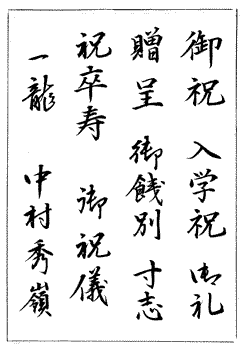 御祝 入学祝 御礼
贈呈 御餞別 寸志
祝卒寿 御祝儀
一龍 中村秀嶺